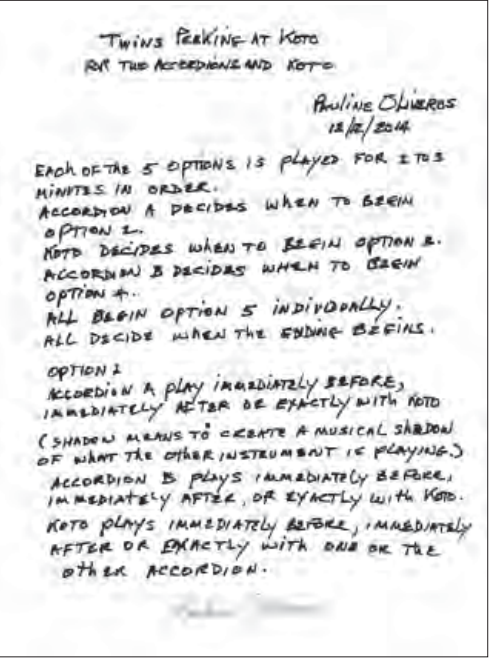 TWINS PEEKING AT KOTO
FOR TWO ACCORDIONS AND KOTO
PAULINE OLIVEROS
12/12/2014
EACH OF THE 5 OPTIONS IS PLAYED FOR 2 TO 3
MINUTES IN ORDER.
ACCORDION A DECIDES WHEN TO BEGIN
OPTION 2.
KOTO DECIDES WHEN TO BEGIN OPTION 3.
ACCORDION B DECIDES WHEN TO BEGIN
OPTION 4.
ALL BEGIN OPTION 5 INDIVIDUALLY.
ALL DECIDE WHEN THE ENDING BEGINS.
OPTION 1
ACCORDION A PLAY IMMEDIATELY BEFORE,
IMMEDIATELY AFTER OR EXACTLY WITH KOTO
(SHADOW MEANS TO CREATE A MUSICAL SHADOW
OF WHAT THE OTHER INSTRUMENT IS PLAYING.)
ACCORDION B PLAYS IMMEDIATELY BEFORE,
IMMEDIATELY AFTER, OR EXACTLY WITH KOTO.
KOTO PLAYS IMMEDIATELY BEFORE, IMMEDIATELY
AFTER OR EXACTLY WITH ONE OR THE
OTHER ACCORDION.